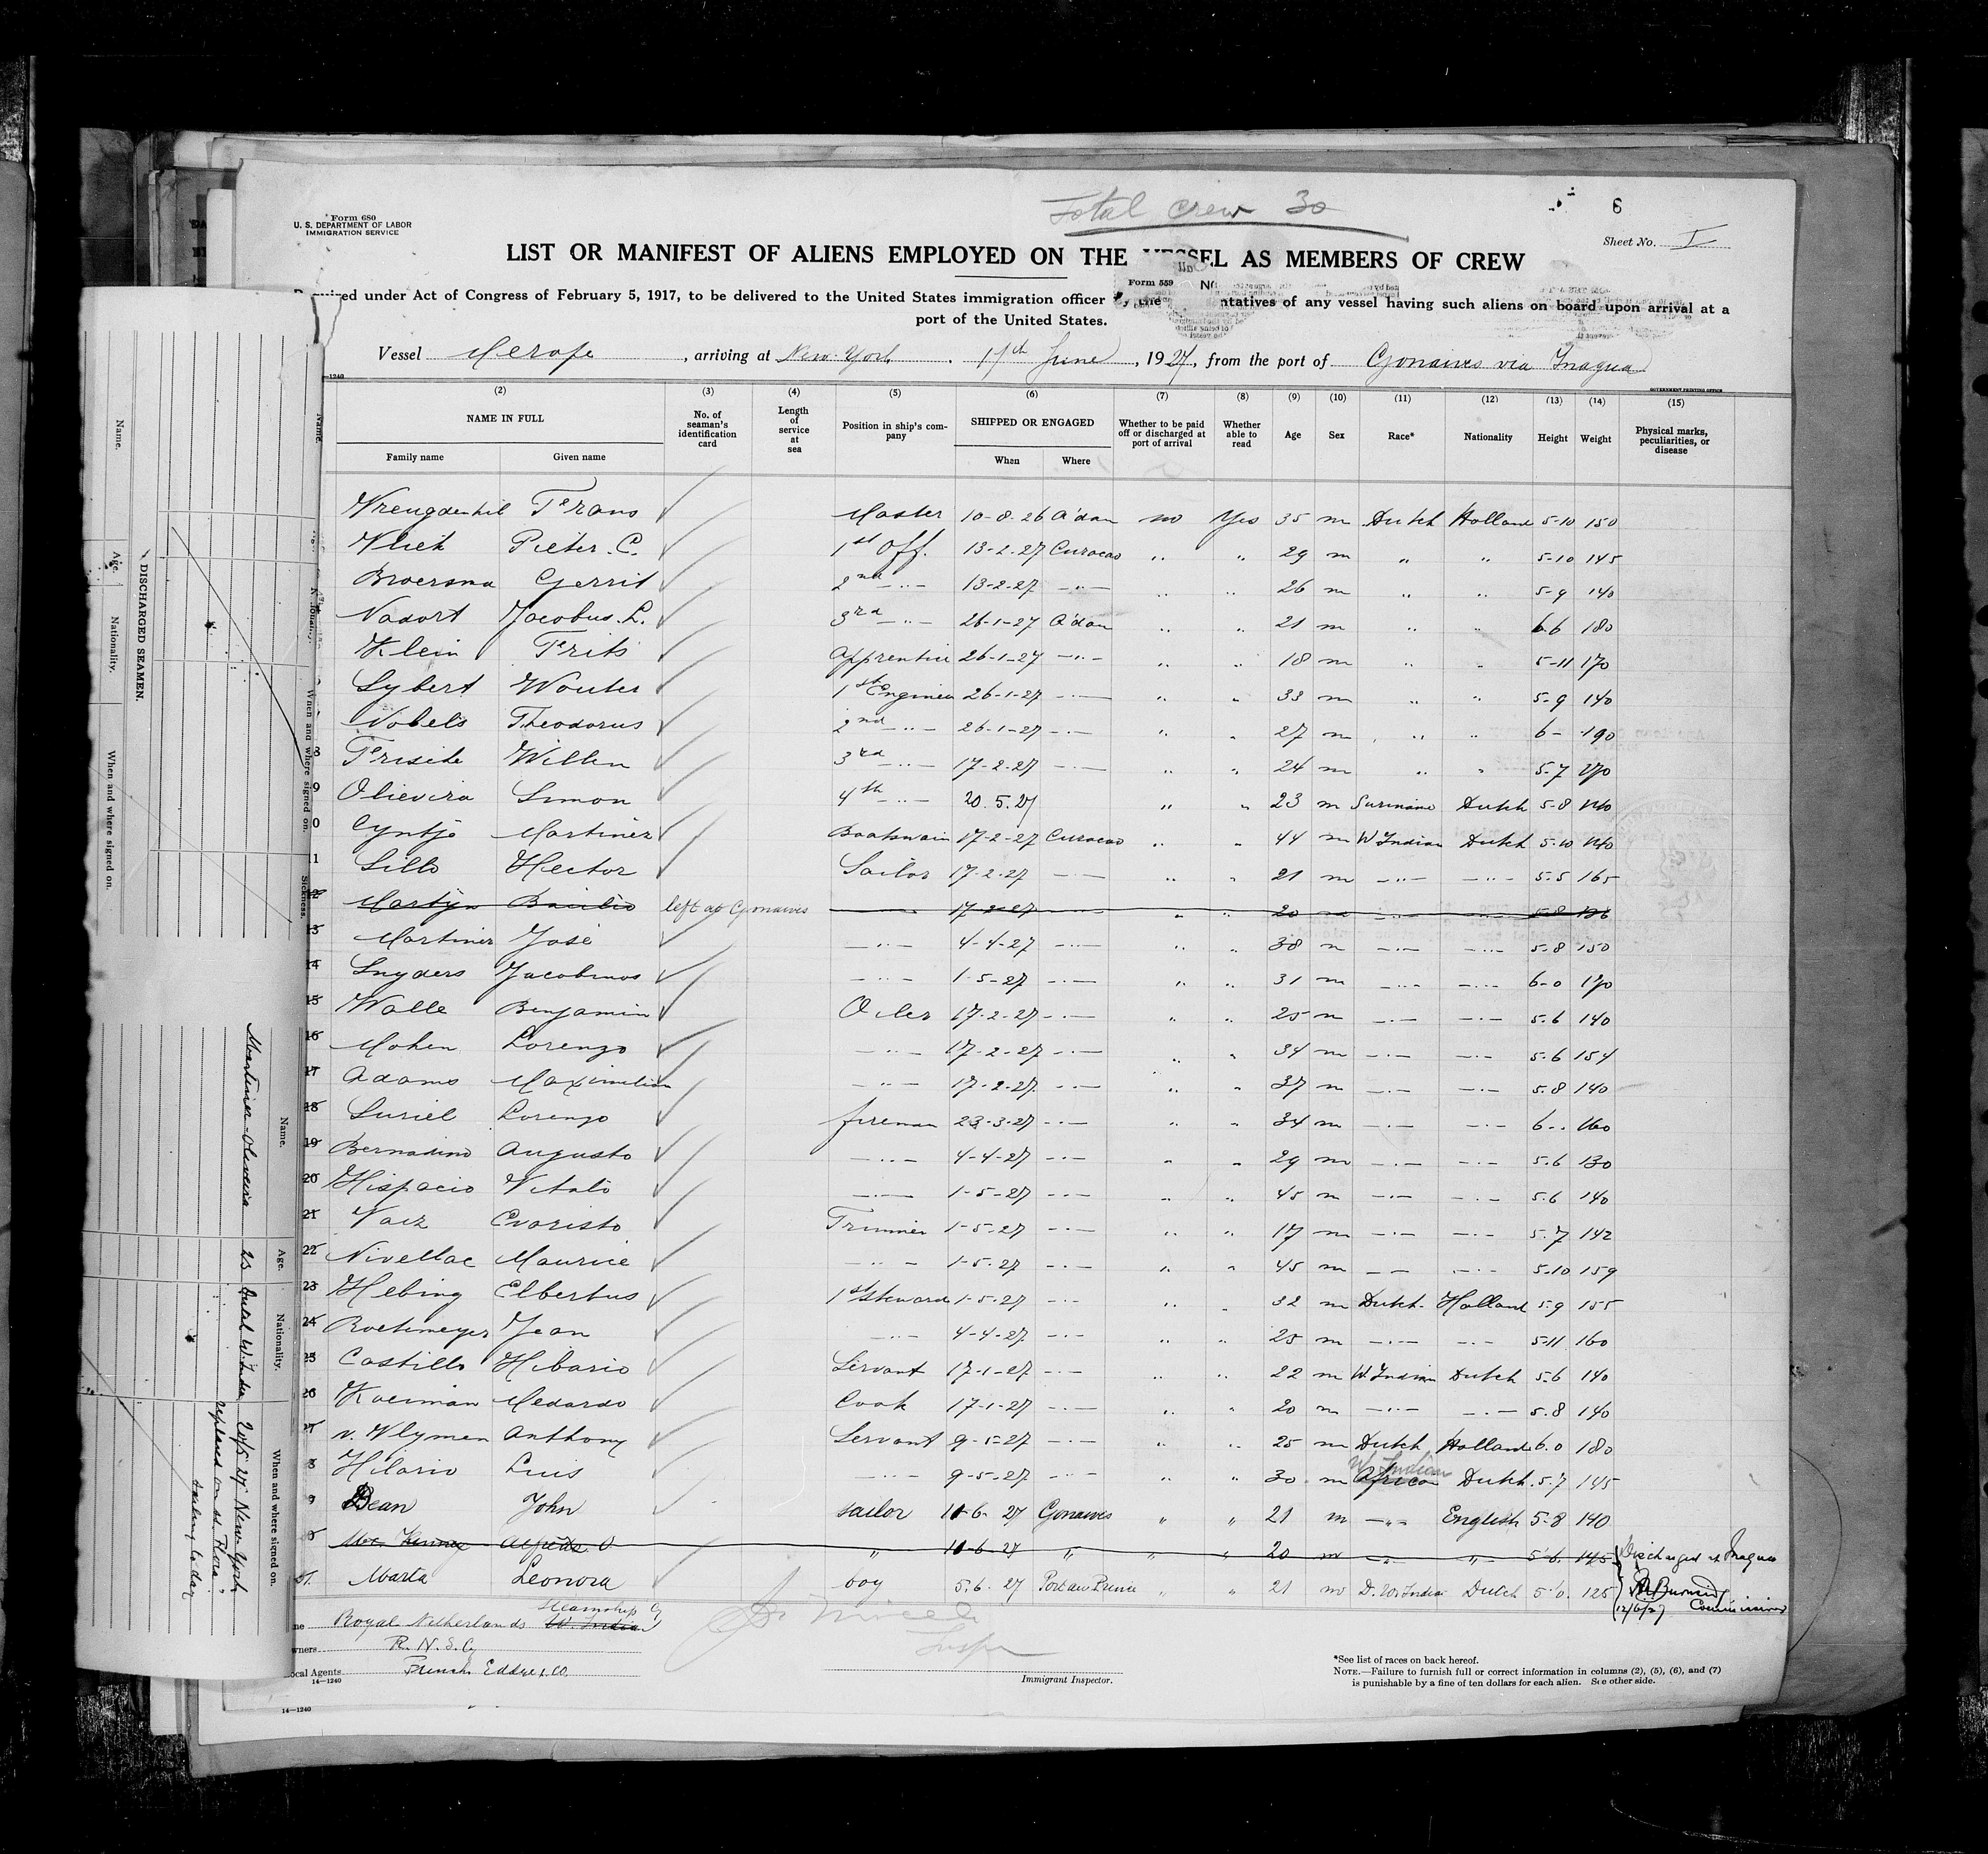 Total crew 30
6
Form 680
U. S. DEPARTMENT OF LABOR
IMMIGRATION SERVICE
Sheet No. I
LIST OR MANIFEST OF ALIENS EMPLOYED ON THE VESSEL AS MEMBERS OF CREW
Form 559 NO
under Act of Congress of February 5, 1917, to be delivered to the United States immigration officer by the tatives of any vessel having such aliens on board upon arrival at a
port of the United States.
Vessel Merope, arriving at New York. June, 1927, from the port of Gonaives via Inagua
—1240
GOVERNMENT PRINTING OFFICE
(2) (3) (4) (5) (6) (7) (8) (9) (10) (11) (12) (13) (14) (15)
NAME IN FULL No. of seaman's identification card Length of service at sea Position in ship's company SHIPPED OR ENGAGED Whether to be paid off or discharged at port of arrival Whether able to read Age Sex Race* Nationality Height Weight Physical marks, peculiarities, or disease
Family name Given name When Where
Vreugdenhil Frans Master 10-8-26 A'dam no Yes 35 m Dutch Holland 5-10 150
Vliet Pieter. C. 1st Off. 13-2-27 Curacao " " 29 m " " 5-10 145
Broersma Gerrit 2nd -"- 13-2-27 -"- " " 26 m " " 5-9 140
Nadort Jacobus. L. 3rd -"- 26-1-27 A'dam " " 21 m " " 6.6 180
Klein Frits Apprentice 26-1-27 -"- " " 18 m " " 5-11 170
Sybert Wouter 1st Engineer 26-1-27 -"- " " 33 m " " 5-9 140
Nobels Theodorus 2nd -"- 26-1-27 -"- " " 27 m " " 6- 190
8 Willem 3rd -"- 17-2-27 -"- " " 24 m " " 5-7 170
9 Olievira Simon 4th -"- 20.5.27 " " 23 m Suriname Dutch 5-8 140
0 Cyntje Martines Boatswain 17-2-27 Curacao " " 44 m W Indian Dutch 5-10 140
11 Sillo Hector Sailor 17-2-27 -"- " " 21 m -"- -"- 5.5 165
12 Martyn Basilio left at Gonaives 17-2-27 " " 20 m -"- -"- 5-8 136
13 Martines José -"- 4-4-27 -"- " " 38 m -"- -"- 5.8 150
14 Snyders Jacobinus -"- 1-5-27 -"- " " 31 m -"- -"- 6-0 170
15 Walle Benjamin Oiler 17-2-27 -"- " " 25 m -"- -"- 5.6 140
16 Mohen Lorenzo -"- 17-2-27 -"- " " 34 m -"- -"- 5.6 154
17 Adams Maximilian -"- 17-2-27 -"- " " 37 m -"- -"- 5.8 140
18 Suriel Lorenzo fireman 23-3-27 -"- " " 34 m -"- -"- 6-. 160
19 Bernadino Augusto -"- 4-4-27 -"- " " 29 m -"- -"- 5.6 130
20 Hispacio Vitalo -"- 1-5-27 -"- " " 45 m -"- -"- 5.6 140
21 Vaez Evaristo Trimmer 1-5-27 -"- " " 17 m -"- -"- 5.7 142
22 Nivellac Maurice -"- 1-5-27 -"- " " 45 m -"- -"- 5.10 159
23 Helbing Elbertus 1st Steward 1-5-27 -"- " " 32 m Dutch Holland 5.9 155
24 Roetemeyer Jean -"- 4-4-27 -"- " " 25 m -"- -"- 5-11 160
25 Castillo Hibario Servant 17-1-27 -"- " " 22 m W Indian Dutch 5.6 140
26 Koeiman Medardo Cook 17-1-27 -"- " " 20 m -"- -"- 5.8 140
v. Wlymen Anthony Servant 9-5-27 -"- " " 25 m Dutch Holland 6.0 180
8 Hilario Luis -"- 9-5-27 -"- " " 30 m African W Indian Dutch 5.7 145
9 Dean John sailor 10-6-27 Gonaives " " 21 m -"- English 5-8 140
Mc Kinney Alfreds. O " 10-6-27 " " " 20 m -"- " 5'6. 145 Discharged at Inagua
31. Marta Leonora boy 5.6.27 Port au Prince " " 21 m D. W. India Dutch 5'/0. 125
Burnside
12/6/27 Commissioner
Line Royal Netherlands W. India Steamship Cy
Owners R. N. S. Cy
Local Agents French Eddye & Co.
14—1240
Inspr
Immigrant Inspector.
*See list of races on back hereof.
NOTE.—Failure to furnish full or correct information in columns (2), (5), (6), and (7)
is punishable by a fine of ten dollars for each alien. See other side.
14—1240
DISCHARGED SEAMEN.
Name. Age. Nationality. When and where signed on.
Name. Nationality. When and where signed on. Sickness.
Name. Age. Nationality. When and where signed on.
Martines-Oliveira 23 Dutch W. India 20/5 27 New York
replaced on ss. "Flora"
sailing to day